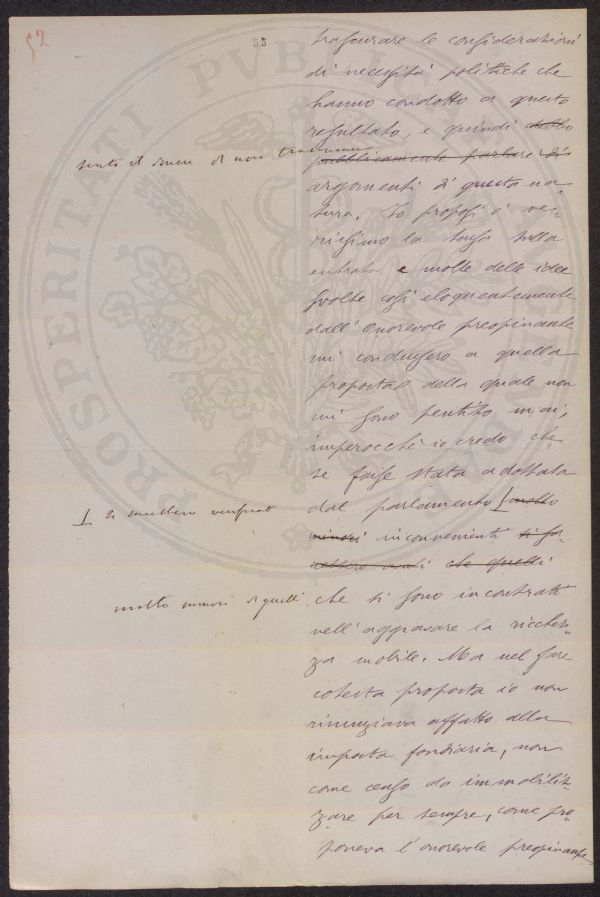 52
55
trascurare le considerazioni
di necessità politiche che
hanno condotto a questo
resultato, e quindi debbo
sento il dovere di non
pubblicamente parlare di
argomenti di questa na-
tura. Io proposi è ve-
rissimo la tassa sulla
entrata e molte delle idee
svolte così eloquentemente
dall'Onorevole preopinante
mi condussero a quella
proposta della quale non
mi sono pentito mai,
imperocchè io credo che
se fosse stata adottata
dal parlamento molto
si sarebbero
minori inconvenienti si sa-
rebbero avuti che quelli
molto minori di quelli
che si sono incontrati
nell'aggravare la ricchez-
za mobile. Ma nel fare
cotesta proposta io non
rinunziava affatto alla
imposta fondiaria, non
come censo da immobiliz-
zare per sempre, come pro-
poneva l'onorevole preopinante
PVBLICAE
PROSPERITATI